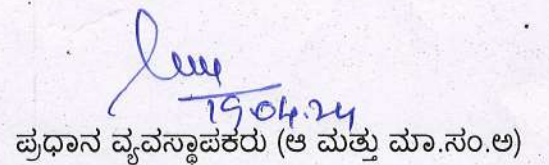 19.04.24
ಪ್ರಧಾನ ವ್ಯವಸ್ಥಾಪಕರು (ಆ ಮತ್ತು ಮಾ.ಸಂ.ಅ)